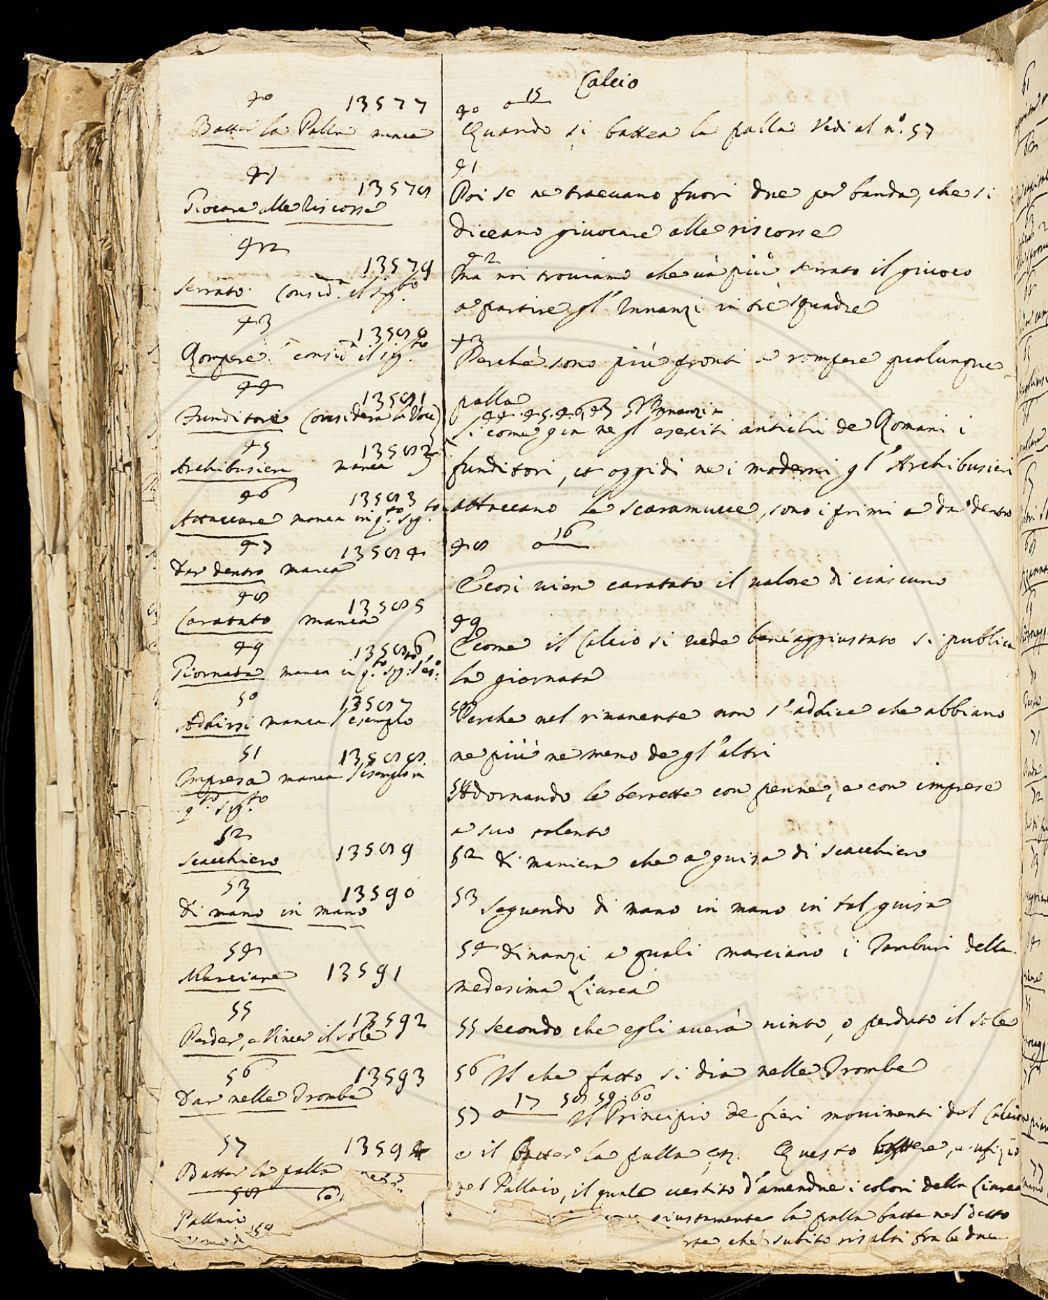 Calcio
40 13577
Batter la Palla manca
40 15
Quando si battea la palla Vedi al n.º 57
41 13578
Giocare alle riscosse
41
Poi se ne traevano fuori due per banda, che si
diceano giuocare alle riscosse
42 13579
Serrato. Consid.ª il sig.to
42
Ma noi troviamo che và più serrato il giuoco
a partire gl'Innanzi in tre squadre
43 13580
Rompere. consid.ª il sig.to
43
Perche sono più pronti a rompere qualunque
palla
44 13581
Funditore Considera la Voce
44. 45. 46. 47
Si come già ne gl'eserciti antichi de Romani i
45 13582
Archibusiere manca
funditori, et oggidì ne i moderni gl'Archibusieri
46 13583
Attaccare manca in q.to sig.to
attaccano le scaramucce, sono i primi a dar dentro
47 13584
Dar dentro manca
48 16
48 13585
Caratato manca
E così vien caratato il valore di ciascuno
49 13586
Giornata manca in q.to sig.to
49
E come il Calcio si vede bene aggiustato si pubblica
la giornata
50 13587
Addirsi manca l'esemplo
50 Perche nel rimanente non s'addice che abbiano
ne più ne meno de gl'altri
51 13588
Impresa manca l'esemplo in
q.to sig.to
51 Adornando le berrette con penne, e con imprese
a suo talento
52 13589
Scacchiero
52 Di maniera che a guisa di scacchiero
53 13590
Di mano in mano
53 Seguendo di mano in mano in tal guisa
54 13591
Marciare
54 Dinanzi a quali marciano i Tamburi della
medesima Livrea
55 13592
Perder, o Vincer il sole
55 Secondo che egli averà vinto, o perduto il sole
56 13593
Dar nelle Trombe
56 Il che fatto si dia nelle Trombe
57 17 58 59. 60
Il Principio de fieri movimenti del Calcio
57 13594
Batter la palla
è il batter la palla etc. Questo è ufizio
58
Pallaio
del Pallaio, il quale vestito d'amendue i colori della Livrea
giustamente la palla batte nel detto
che subito risalti fra le due